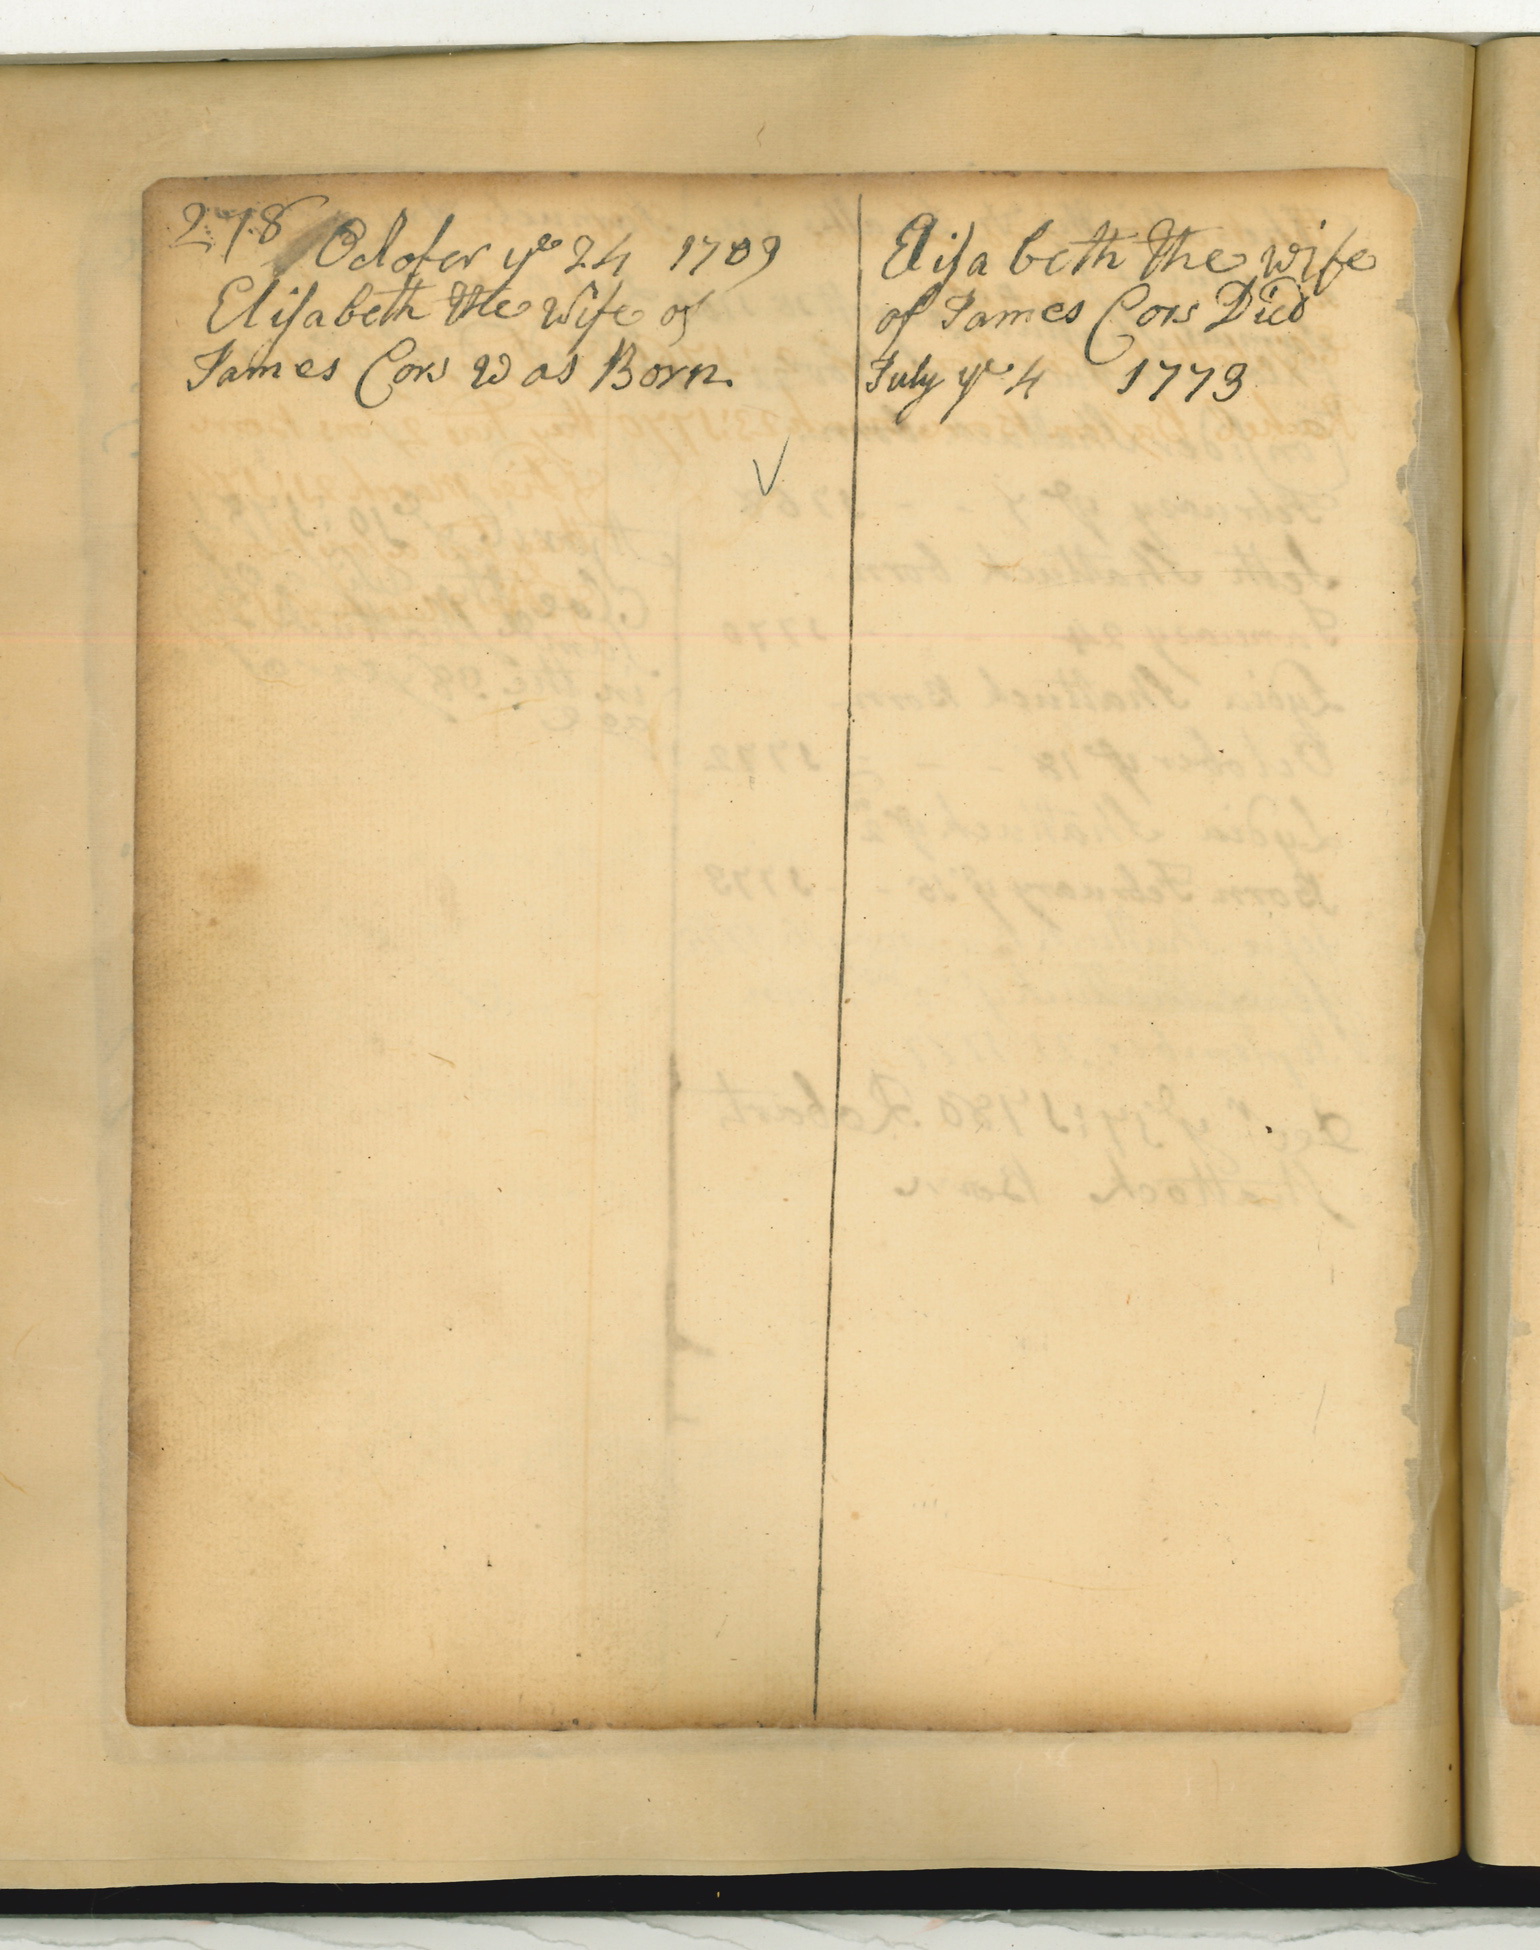 278
October ye 24 1709
Elisabeth the wife of
James Cors Was Born
Elisabeth the wife
of James Cors Died
July ye 4 1773